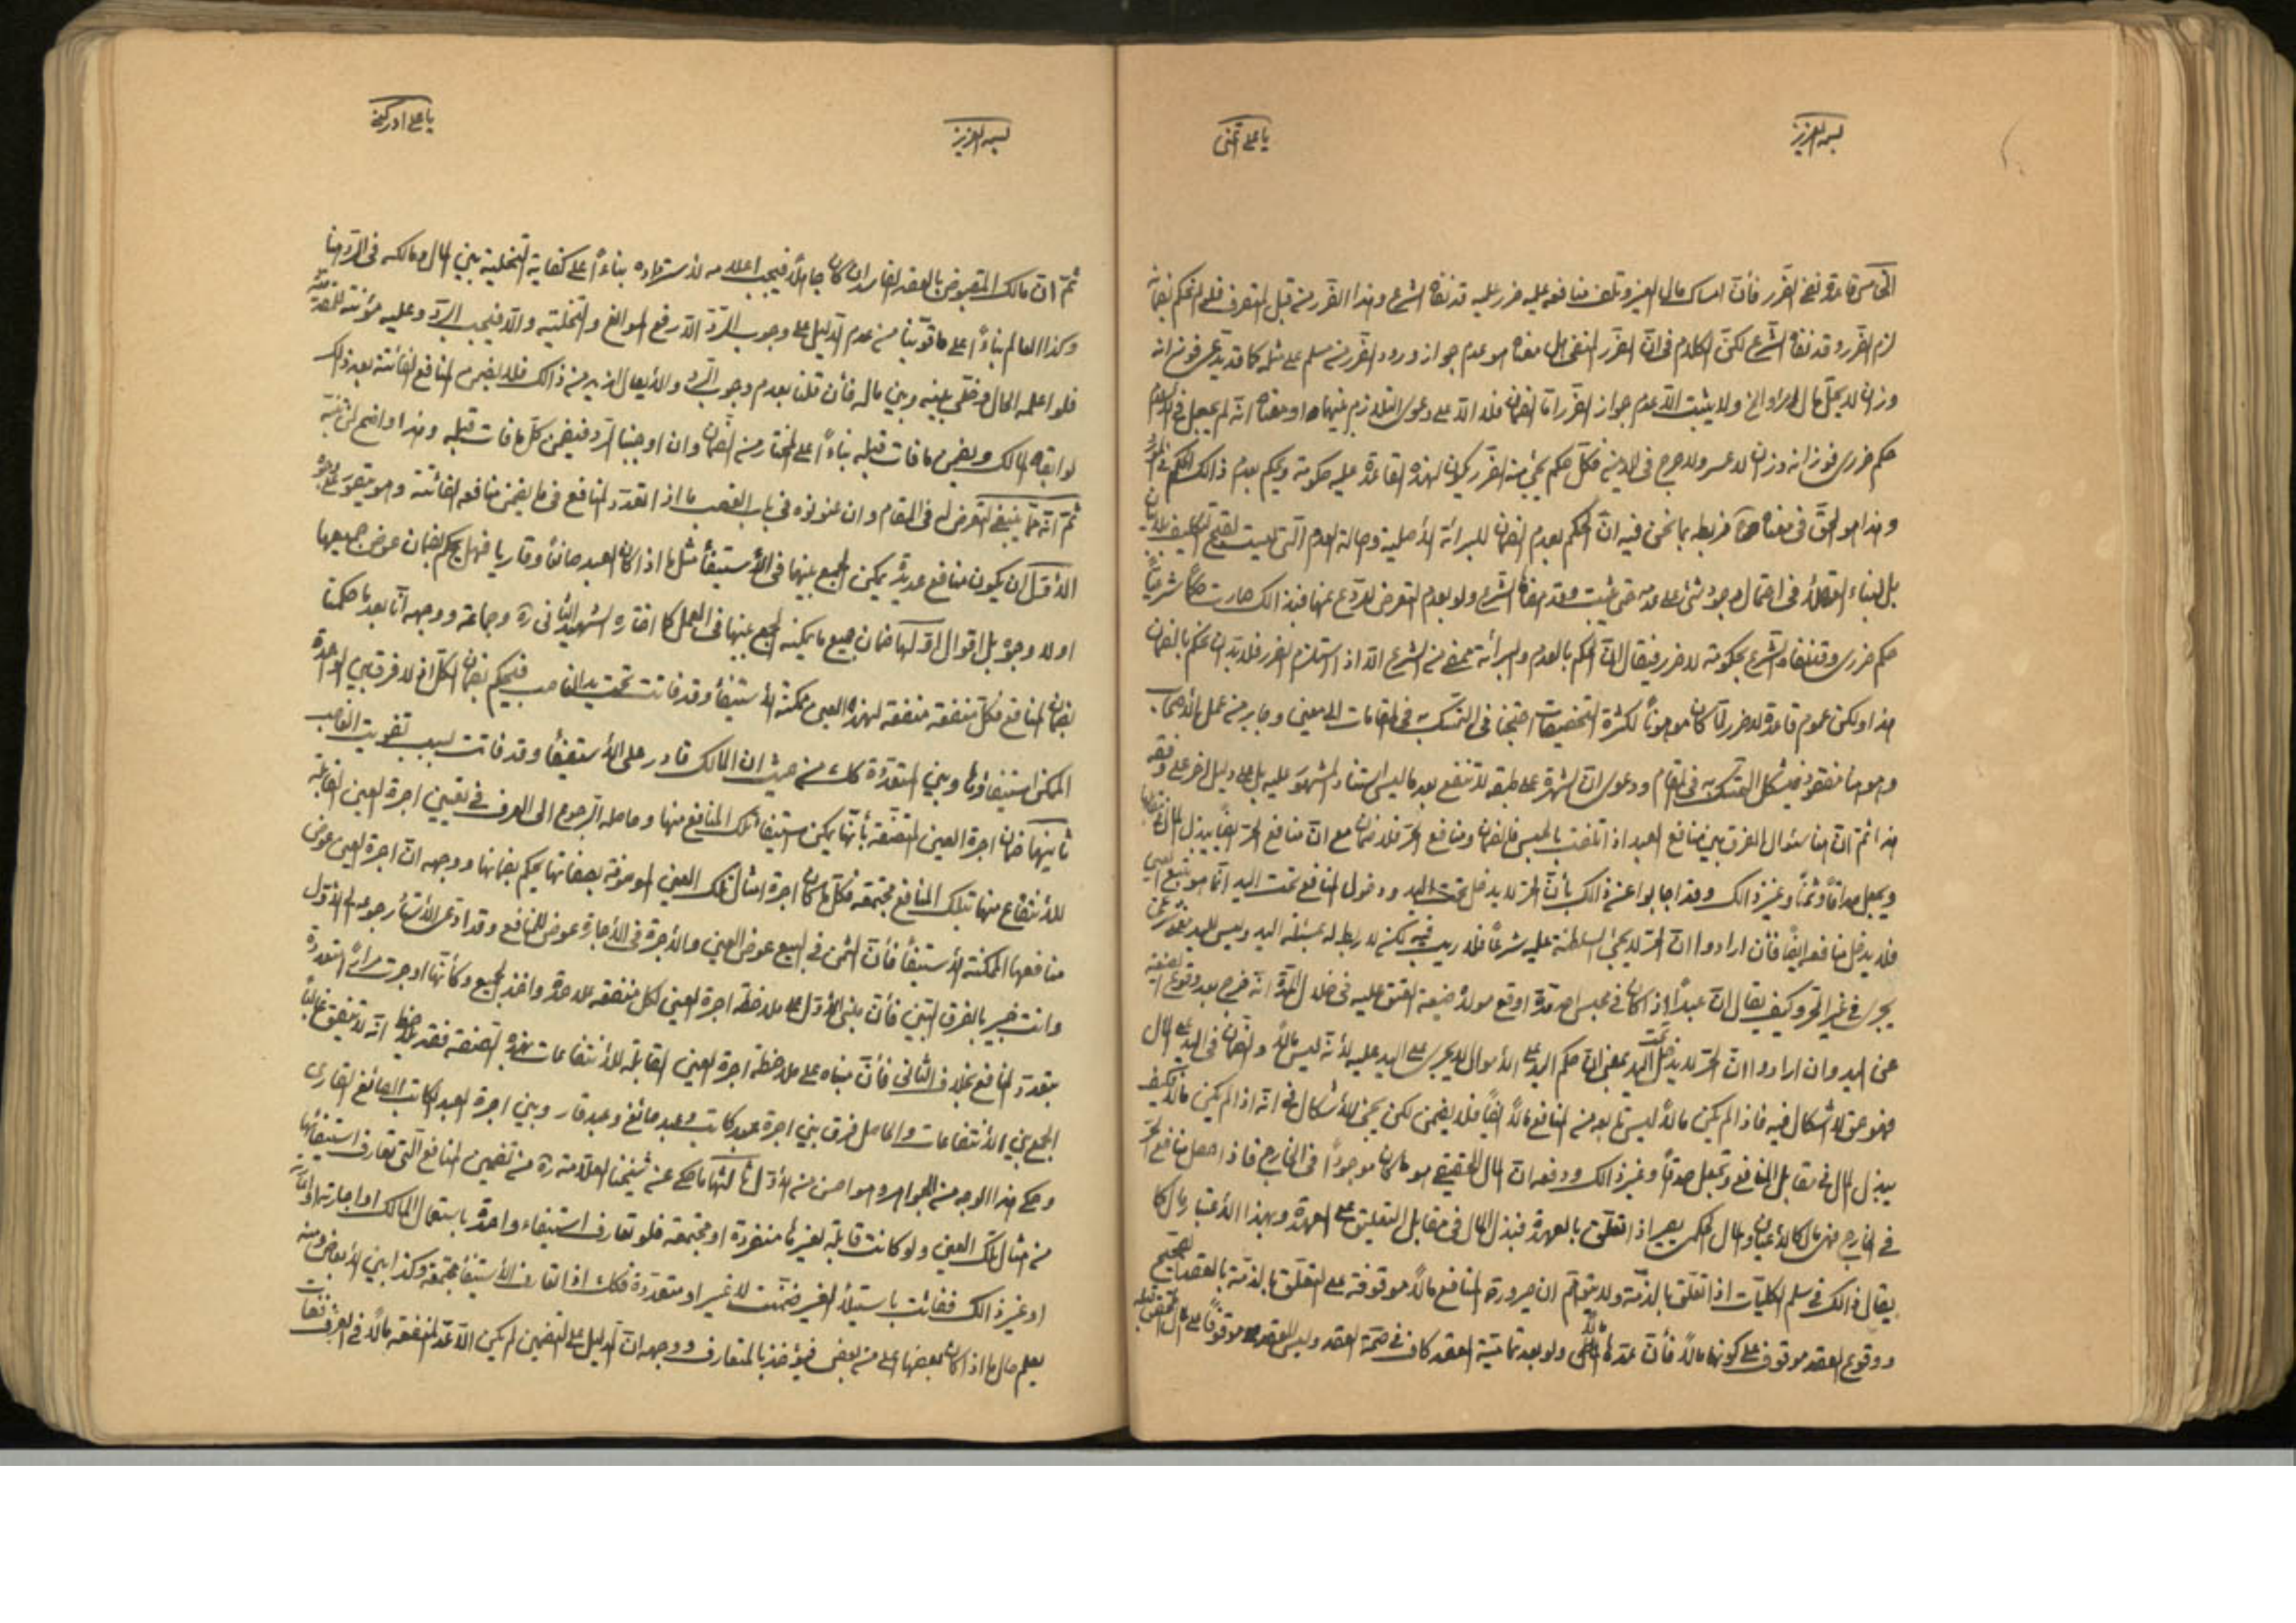 بسمه العزيز
يا علي أغثني
الخامس قاعدة نفي الضرر فأنّ امساك مال الغير وتلف منافعه عليه ضرر عليه قد نفاه الشرع وهذا الضرر من قبل المتصرف فلو لم نحكم بضمانه
لزم الضرر وقد نفاه الشرع لكن الكلام في انّ الضرر المنفي هل معناه هو عدم جواز ورود الضرر من مسلم على مثله كما قد يدّعى فوزانه
وزان لا يحلّ مال امرء الخ ولا يثبت الّا عدم جواز الضرر امّا الضمان فلا الّا على دعوى التلازم بينهما او معناه انّه لم يجعل في الاسلام
حكم ضرري فوزانه وزان لا عسر ولا حرج في الدين فكلّ حكم يجئ منه الضرر يكون لهذه القاعدة عليه حكومة ويحكم بعدم ذالك الحكم في
وهذا هو الحقّ في معناه فربطه بما نحن فيه انّ الحكم بعدم الضمان للبرائة الأصلية واصالة العدم الّتي ليست
بل لبناء العقلاء في احتمال وجود شئ على عدمه حتى يثبت وقد امضاه الشرع ولو بعدم التعرض للردع عنها فبذالك صارت حكماً شرعيّاً
حكم ضرري وقد نفاه الشرع بحكومة لا ضرر فيقال انّ الحكم بالعدم والبرائة ممضى من الشرع الّا اذا استلزم الضرر فلا بدّ ان نحكم بالضمان
هذا ولكن عموم قاعدة لا ضرر لمّا كان موهوناً لكثرة التخصيصات احتجنا في التمسك به في المقامات الى معين وجابر من عمل الأصحاب
وهو هنا مفقود فيشكل التمسك به في المقام ودعوى انّ الشهرة على طبقه لا تنفع بعد ما ليس استناد المشهور عليه بل على دليل اخر على وفقه
هذا ثمّ انّ هنا سئوال الفرق بين منافع العبد اذا تلفت بالحبس فالضمان ومنافع الحرّ فلا ضمان مع انّ منافع الحرّ ايضاً يبذل المال
ويجعل صداقاً وثمناً وغير ذالك وقد اجابوا عن ذالك بأنّ الحرّ لا يدخل تحت اليد ودخول المنافع تحت اليد انّما هو بتبع العين
فلا يدخل منافعه ايضاً فأن ارادوا انّ الحرّ لا يجئ السلطنة عليه شرعاً فلا ريب فيه لكنه لا ربط له بمسئلة اليد وليس لليد معنى شرعي
يجري في غير الحرّ وكيف يقال انّ عبداً اذا كان في محبس احد مدّة اوقع مولاه صيغة العتق عليه في خلال المدّة انّه خرج بعد وقوع الصيغة
عن اليد وان ارادوا انّ الحرّ لا يدخل تحت اليد بمعنى انّ حكم اليد على الأموال لا يجري على اليد عليه لأنّه ليس مالاً والضمان في اليد على المال
فهو حق لا اشكال فيه فاذا لم يكن مالاً ليس تابعه من المنافع مالاً ايضاً فلا يضمن لكن يجئ الأشكال في انّه اذا لم يكن مالاً فكيف
يبذل المال في مقابل المنافع وتجعل صدقاً وغير ذالك ودفعه انّ المال الحقيقي هو ما كان موجوداً في الخارج فاذا حصل منافع الحرّ
في الخارج فهي مال كالأعيان والمال الحكمي يصير اذا تعلّق بالعهدة فبذل المال في مقابل التعليق على العهدة وبهذا الأعتبار مال كما
يقال ذالك في سلم الكليّات اذا تعلّق بالذمّة ولا يتوهّم ان صيرورة المنافع مالاً موقوفة على التعلّق بالذمّة بالعقد الصحيح
ووقوع العقد موقوف على كونها مالاً فأن عدّها مالاً ولو بعد تماميّة العقد كاف في صحّة العقد وليس العقد موقوفاً على
بسمه العزيز
يا علي ادركني
ثمّ انّ مالك المقبوض بالعقد الفاسد ان كان جاهلاً فيجب اعلامه لاسترداده بناءً على كفاية التخلية بين المال ومالكه في الرّد هنا
وكذا العالم بناءً على ما قوّينا من عدم الدليل على وجوب الرّد الّا رفع الموانع والتخلية والّا فيجب الرّد وعليه مؤنته
فلو اعلمه الحال وخلّى بينه وبين ماله فأن قلنا بعدم وجوب الرّد والأيصال ازيد من ذالك فلا يضمن المنافع الفائتة بعد ذالك
لو ابقاه المالك ويضمن ما فات قبله بناءً على المختار من الضمان وان اوجبنا الرد فيضمن كلّ ما فات قبله وهذا واضح
ثمّ انّه ممّا ينبغي التعرض له في المقام وان عنونوه في باب الغصب ما اذا تعدّد المنافع في ما يضمن منافعه الفائتة وهو يتصور على وجوه
الأوّل ان يكون منافع عديدة يمكن الجمع بينها في الأستيفاء مثل ما اذا كان العبد صائغاً وقارياً فهل يحكم بضمان عوض جميعها
اولا وجوه بل اقوال اوّلها ضمان جميع ما يمكنه الجمع بينها في العمل كما اختاره الشهيد الثاني ره وجماعة ووجهه انّا بعد ما حكمنا
بضمان المنافع فكلّ منفعة منفعة لهذه العين ممكنة الأستيفاء وقد فاتت تحت يد الغاصب فليحكم بضمان الكل اذ لا فرق بين الواحدة
الممكن استيفاؤها وبين المتعدّدة كك من حيث ان المالك قادر على الأستيفاء وقد فاتت بسبب تفويت الغاصب
ثانيها ضمان اجرة العين المتصّفة بأنّها يمكن استيفاء تلك المنافع منها وحاصله الرجوع الى العرف في تعيين اجرة العين القابلة
للأنتفاع منها بتلك المنافع مجتمعة فكل ما كان اجرة امثال تلك العين الموصوفة بصفاتها يحكم بضمانها ووجهه انّ اجرة العين عوض
منافعها الممكنة الأستيفاء فأنّ الثمن في البيع عوض العين والأجرة في الأجارة عوض للمنافع وقد ادعى الأستاد رجوعه الى الأوّل
وانت خبير بالفرق البيّن فأنّ مبنى الأوّل على ملاحظة اجرة العين لكل منفعة على حدة واخذ الجميع وكأنّها اوجرت مراراً متعددة
بتعدّد المنافع بخلاف الثاني فأنّ مبناه على ملاحظة اجرة العين القابلة للأنتفاعات بهذه الصفة فقد يلاحظ انّه لا يتفق غالباً
الجمع بين الأنتفاعات والحاصل فرق بين اجرة عبد كاتب وعبد صائغ وعبد قار وبين اجرة العبد الكاتب الصائغ القاري
وحكي هذا الوجه من الجواهر وهو احسن من الأوّل ثالثها ما حكي عن شيخنا العلّامة ره من تضمين المنافع الّتي تعارف استيفائها
من امثال تلك العين ولو كانت قابلة لغيرها منفردة او مجتمعة فلو تعارف استيفاء واحدة باستعمال المالك او اجارتها
او غير ذالك ففاتت باستيلاء الغير ضمنت لا غير او متعدّدة فكك اذا تعارف الأستيفاء مجتمعة وكذا بين الأبعاض ومنه
يعلم حال ما اذا كان بعضها اعلى من بعض فيؤخذ بالمتعارف ووجهه انّ الدليل على التضمين لم يكن الّا عدّ المنفعة مالاً في العرف